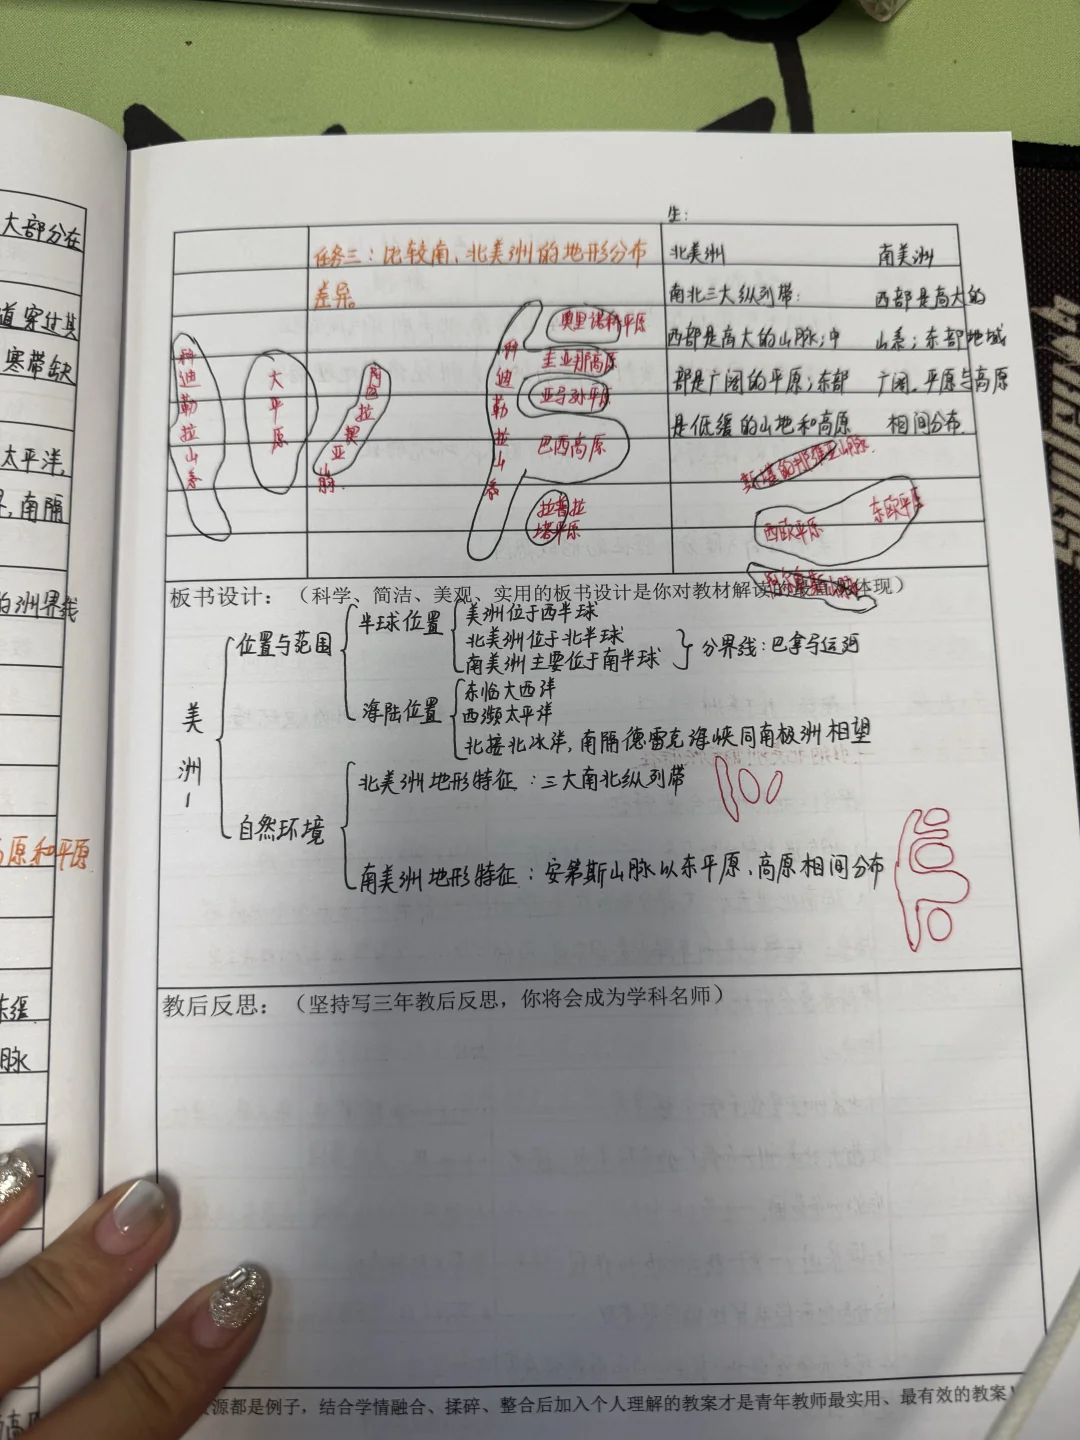 大部分在
道穿过其
寒带缺
太平洋,
南隔
的洲界线
原和平原
脉
生:
任务三:比较南、北美洲的地形分布
差异。
北美洲 南美洲
南北三大纵列带: 西部是高大的
西部是高大的山脉;中 山系;东部地域
部是广阔的平原;东部 广阔,平原与高原
是低缓的山地和高原 相间分布.
科迪勒拉山系
大平原
拉契亚山脉.
科迪勒拉山系
奥里诺科平原
圭亚那高原
亚马孙平原
巴西高原
拉普拉
塔平原
斯堪的那维亚山脉.
西欧平原
东欧平原
板书设计:(科学、简洁、美观、实用的板书设计是你对教材解读的最直观体现)
美洲
位置与范围
半球位置
美洲位于西半球
北美洲位于北半球
南美洲主要位于南半球
分界线:巴拿马运河
海陆位置
东临大西洋
西濒太平洋
北接北冰洋,南隔德雷克海峡同南极洲相望
自然环境
北美洲地形特征:三大南北纵列带
南美洲地形特征:安第斯山脉以东平原、高原相间分布
教后反思:(坚持写三年教后反思,你将会成为学科名师)
源都是例子,结合学情融合、揉碎、整合后加入个人理解的教案才是青年教师最实用、最有效的教案!